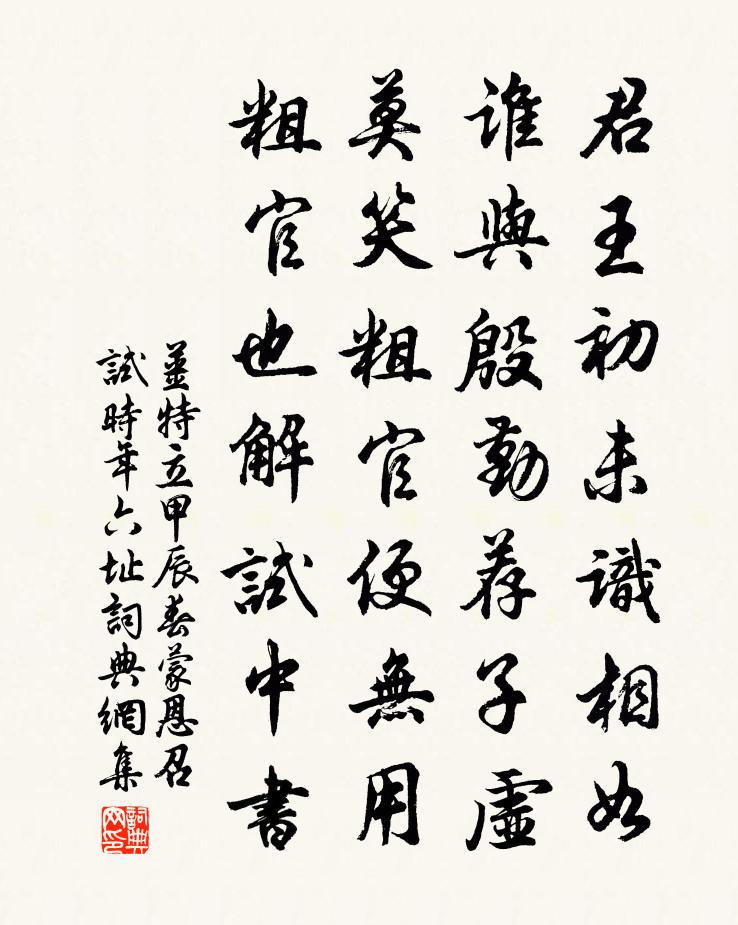 君王初未識相如
誰與殷勤荐子虛
莫笑粗官便無用
粗官也解試中書
姜特立甲辰春蒙恩召
試時年六址詞典網集
詞典网印